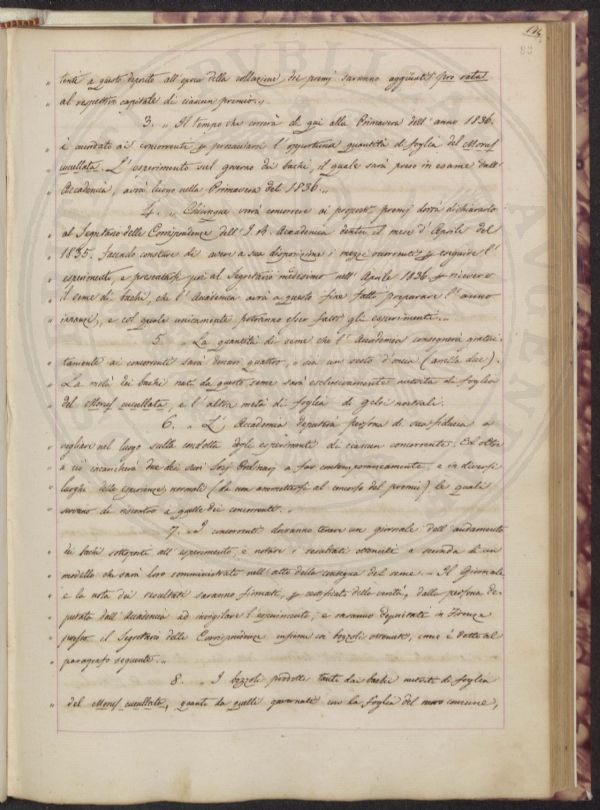 " tenti a questo deposito all'epoca della collazione dei premj saranno aggiudicati pro rata
" al respettivo capitale di ciascun premio.„
" 3. „ Il tempo che correrà di qui alla Primavera dell'anno 1836.
" è accordato ai concorrenti p procacciarsi l'opportuna quantità di foglia del Morus
" cucullata. L'esperimento sul governo dei bachi, il quale sarà preso in esame dall'
" Accademia, avrà luogo nella Primavera del 1836.„
" 4. „ Chiunque vorrà concorrere ai proposti premj dovrà dichiararlo
" al Segretario delle Corrispondenze dell'I. e R. Accademia dentro il mese d'Aprile del
" 1835. facendo constare di avere a sua disposizione i mezzi occorrenti p eseguire l'
" esperimento, e presentarsi poi al Segretario medesimo nell'Aprile 1836 p ricevere
" il seme di bachi, che l'Accademia avrà a questo fine fatto preparare l'anno
" innanzi, e col quale unicamente potranno esser fatti gli esperimenti.„
" 5. „ La quantità di seme che l'Accademia consegnerà gratui-
" tamente ai concorrenti sarà denari quattro, o sia un sesto d'oncia (anella due).
" La metà dei bachi nati da questo seme sarà esclusivamente nutrita di foglia
" del Morus cucullata, e l'altra metà di foglia di gelsi nostrali.
" 6. „ L'Accademia deputerà persona di sua fiducia a
" vegliare nel luogo sulla condotta degli esperimenti di ciascun concorrente. Ed oltre
" a ciò incaricherà due dei suoi Socj Ordinarj a far contemporaneamente, e in diversi
" luoghi delle esperienze normali (da non ammettersi al concorso dei premj) le quali
" servano di riscontro a quelle dei concorrenti.„
" 7. „ I concorrenti dovranno tenere un giornale dell'andamento
" dei bachi sottoposti all'esperimento, e notare i resultati ottenuti a seconda di un
" modello che sarà loro somministrato nell'atto della consegna del seme. – Il Giornale
" e la nota dei resultati saranno firmati, p certificato della verità, dalla persona de-
" putata dall'Accademia ad invigilare l'esperimento; e saranno depositati in Firenze
" presso il Segretario delle Corrispondenze insieme coi bozzoli ottenuti, come è detto al
" paragrafo seguente.„
" 8. „ I bozzoli prodotti tanto dai bachi nutriti di foglia
" del Morus cucullata, quanto da quelli governati con la foglia del moro comune,